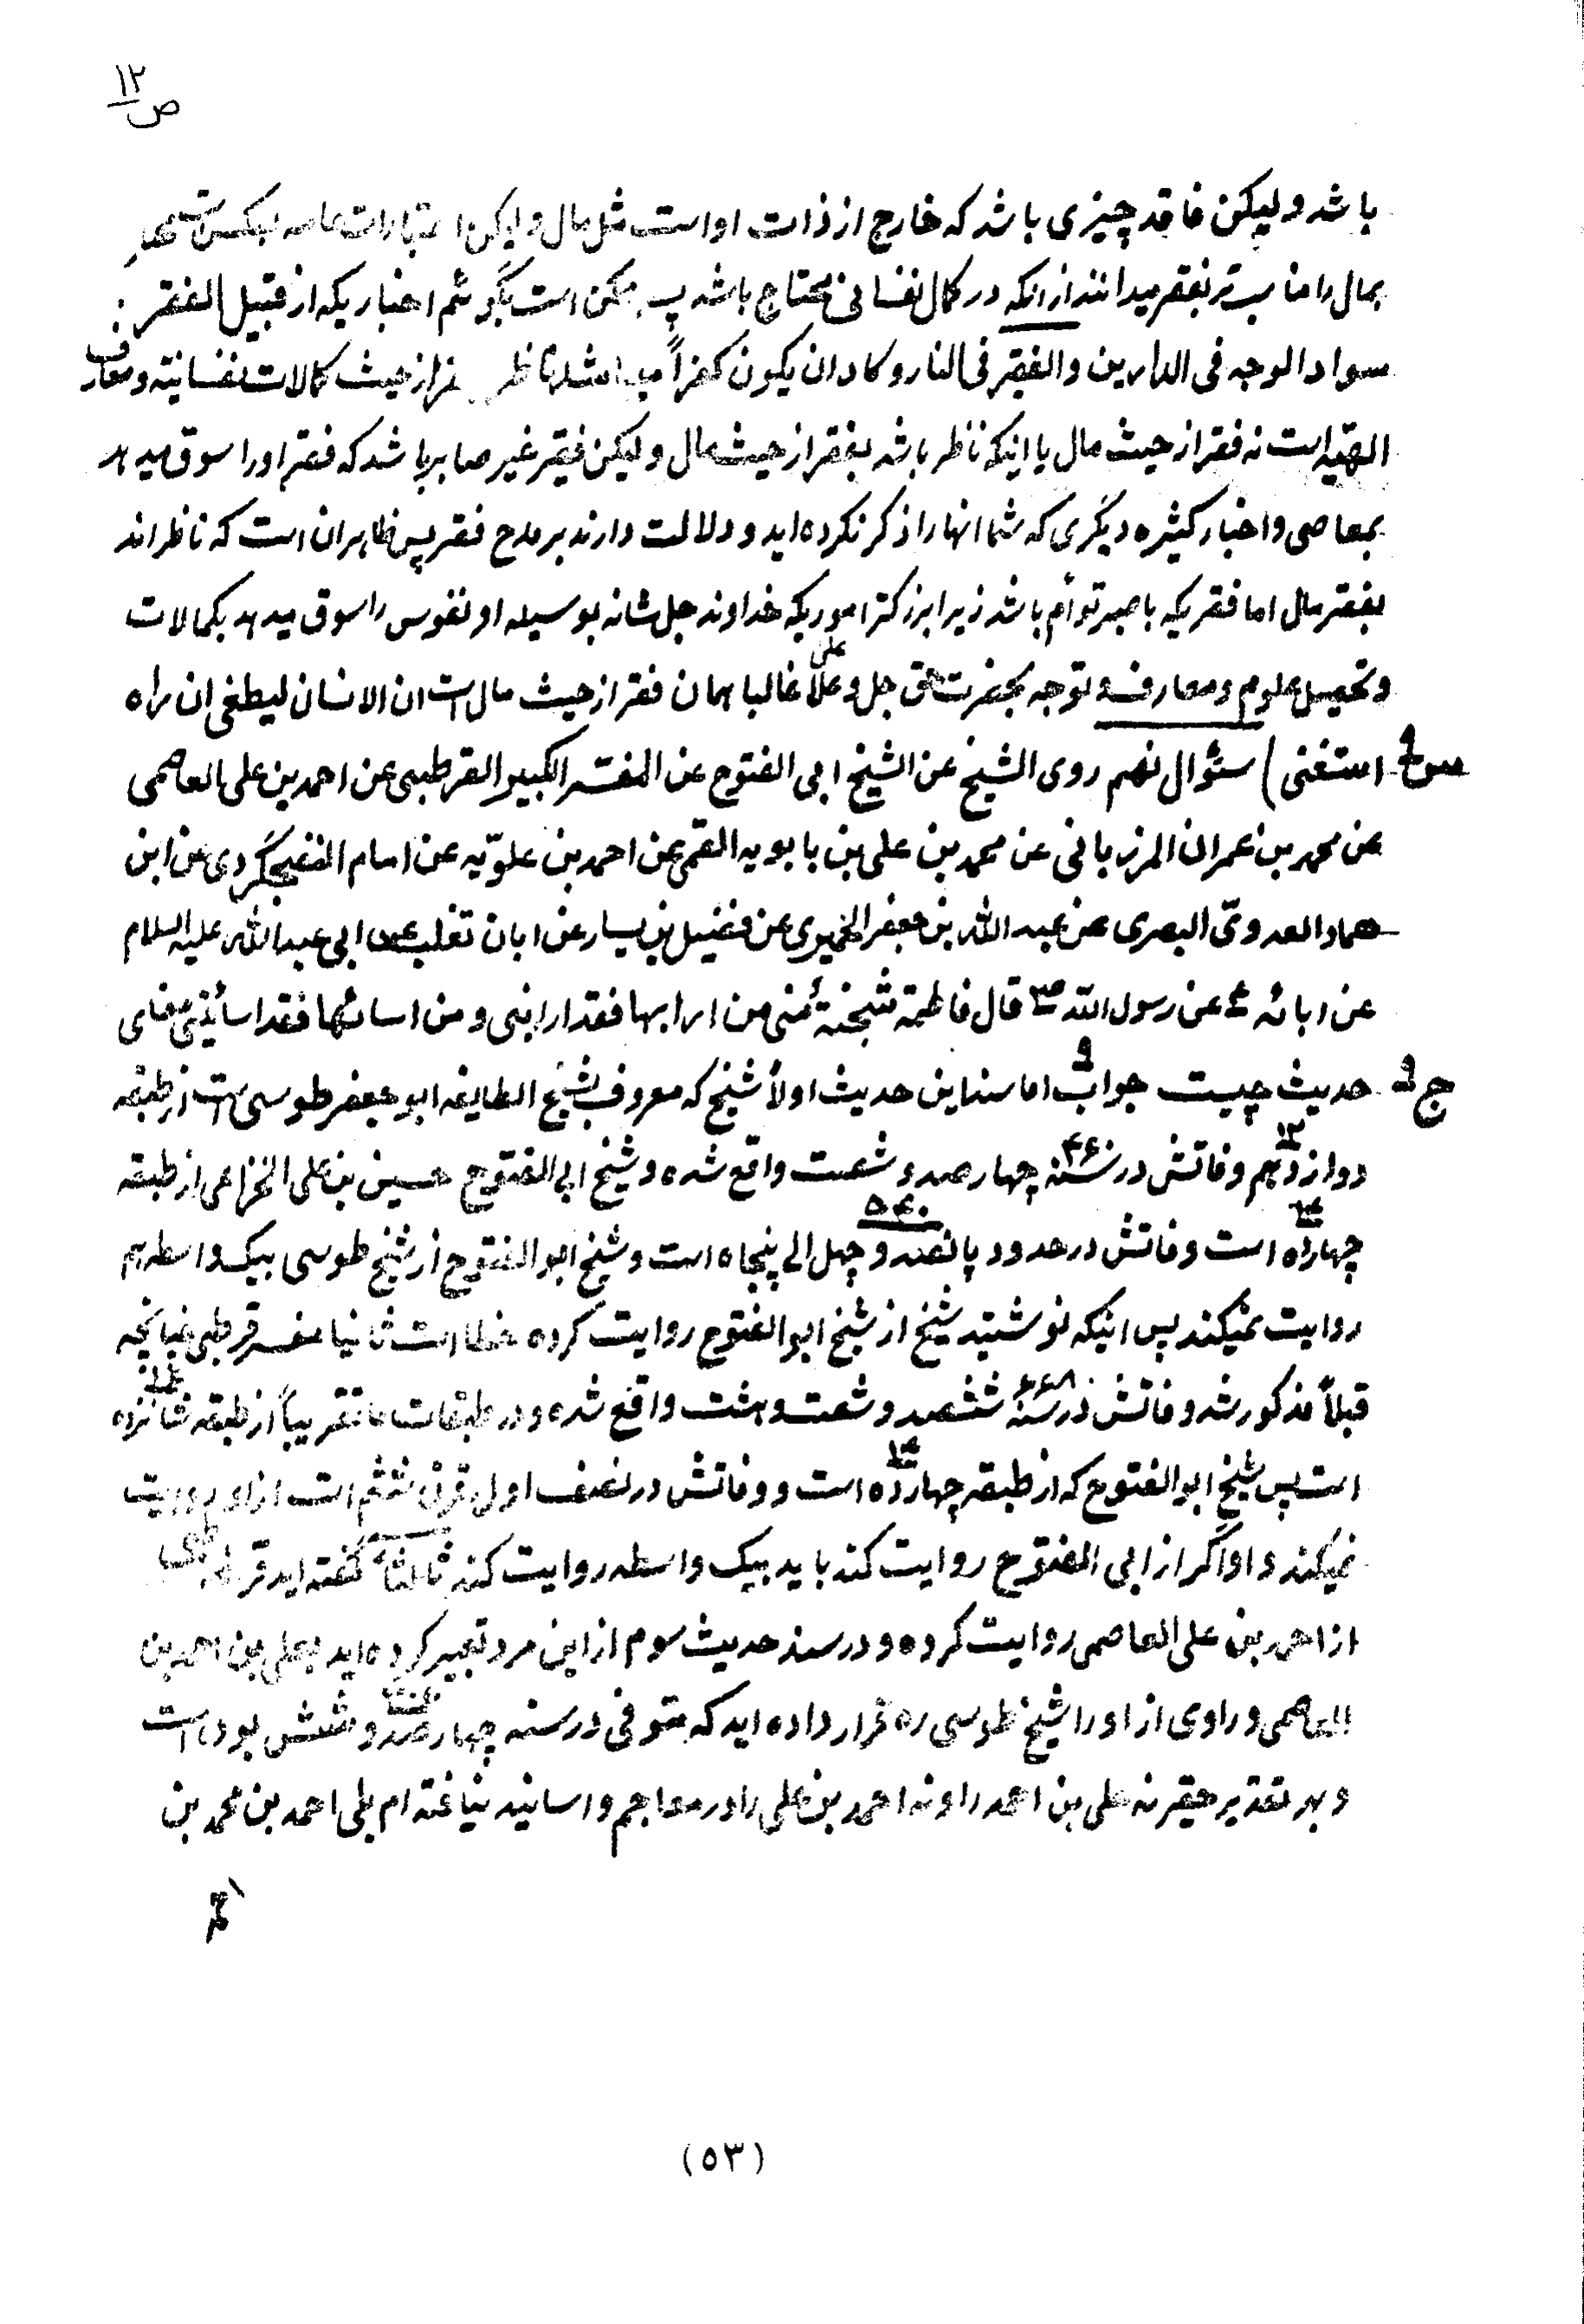 ص ۱۲
باشد ولیکن فاقد چیزی باشد که خارج از ذات او است مثل مال ولیکن اعتبارات عامه
بمال را مناسب تر بفقر میدانند از انکه در کمال نفسانی محتاج باشد پس ممکن است بگوئیم اخباریکه از قبیل الفقر
سواد الوجه فی الدارین والفقر فی النار و کاد ان یکون کفراً میباشد ناظر بفقر از حیث کمالات نفسانیّه و معارف
الهیّه است نه فقر از حیث مال یا اینکه ناظر باشد بفقر از حیث مال ولیکن فقیر غیر صابر باشد که فقر او را سوق میدهد
بمعاصی و اخبار کثیره دیگری که شما انها را ذکر نکرده اید و دلالت دارند بر مدح فقر پس ظاهر ان است که ناظر اند
بفقر مال اما فقریکه با صبر توأم باشد زیرا بزرکتر اموریکه خداوند جل شانه بوسیله او نفوس را سوق میدهد بکمالات
و تحصیل علوم و معارف و توجه بحضرت حق جل و علا غالبا همان فقر از حیث مال است ان الانسان لیطغی ان راه
س۹ استغنی) سئوال نهم روی الشیخ عن الشیخ ابی الفتوح عن المفسر الکبیر القرطبی عن احمد بن علی العاصمی
عن محمد بن عمران المرزبانی عن محمد بن علی بن بابویه القمی عن احمد بن علوّیه عن امام الفنجکردی عن ابن
حماد العدویّ البصری عن عبد الله بن جعفر الحمیری عن فضیل بن یسار عن ابان تغلب عن ابی عبد الله علیه السلام
عن ابائه ع عن رسول الله ص قال فاطمة شجنة منی من ارابها فقد ارابنی و من اسائها فقد اسائنی معنای
ج۹ حدیث چیست جواب ۹ اما سند این حدیث اولاً شیخ که معروف بشیخ الطایفه ابو جعفر طوسی است از طبقه
دوازدهم ۱۲ وفاتش در سنه ۴۶۰ چهار صد و شصت واقع شده و شیخ ابی الفتوح حسین بن علی الخزاعی از طبقه
چهارده ۱۴ است وفاتش در حدود پانصد و چهل ۵۴۰ الی پنجاه است و شیخ ابو الفتوح از شیخ طوسی بیک واسطه هم
روایت نمیکند پس اینکه نوشتید شیخ از شیخ ابو الفتوح روایت کرده خطا است ثانیا مفسر قرطبی چنانچه
قبلاً مذکور شد وفاتش در سنه ۶۶۸ ششصد و شصت و هشت واقع شده و در طبقات ما تقریباً از طبقه شانزده ۱۶
است پس شیخ ابو الفتوح که از طبقه چهارده ۱۴ است و وفاتش در نصف اول قرن ششم است از او روایت
نمیکند و او اگر از ابی الفتوح روایت کند باید بیک واسطه روایت کند ثالثاً گفته اید قرطبی
از احمد بن علی العاصمی روایت کرده و در سند حدیث سوم از این مرد تعبیر کرده اید بعلی بن احمد بن
العاصمی و راوی از او را شیخ طوسی ره قرار داده اید که متوفی در سنه چهار صد و شصت بوده است
و بهر تقدیر حقیر نه علی بن احمد را و نه احمد بن علی را در معاجم و اسانید نیافته ام بلی احمد بن محمد بن
(۵۳)